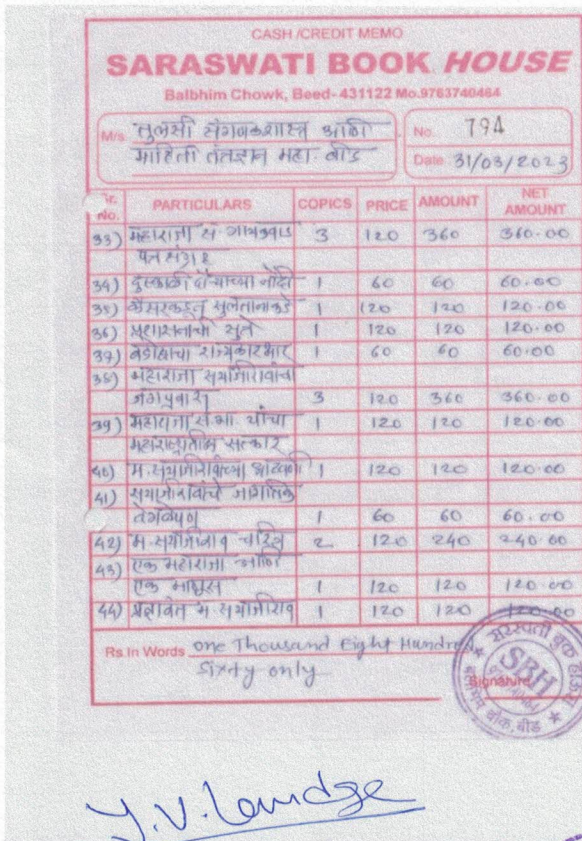 CASH /CREDIT MEMO
SARASWATI BOOK HOUSE
Balbhim Chowk, Beed-431122 Mo.9763740464
M/s तुलसी संगणकशास्त्र आणि
No. 794
माहिती तंत्रज्ञान महा. बीड
Date 31/03/2023
Sr. No. PARTICULARS COPICS PRICE AMOUNT NET AMOUNT
33) महाराजा स. गायकवाड 3 120 360 360.00
पत्रसंग्रह
34) दुष्काळी दौऱ्याच्या नोंदी 1 60 60 60.00
35) कैसरकडून सुलतानाकडे 1 120 120 120.00
36) प्रशासनाची सुत्रे 1 120 120 120.00
37) बडोद्याचा राज्यकारभार 1 60 60 60.00
38) महाराजा सयाजीरावांचा
जगप्रवास 3 120 360 360.00
39) महाराजा सयाजी यांचा 1 120 120 120.00
महाराष्ट्रातील सत्कार
40) म. सयाजीरावांच्या आठवणी 1 120 120 120.00
41) सयाजीरावांचे जागतिक
वेगळेपण 1 60 60 60.00
42) म. सयाजीराव चरित्र 2 120 240 240.00
43) एक महाराजा आणि
एक माणूस 1 120 120 120.00
44) प्रज्ञावंत म सयाजीराव 1 120 120 120.00
Rs In Words one Thousand Eight Hundred
Sixty only
Signature
सरस्वती बुक हाऊस
SBH
बलभिम चौक, बीड